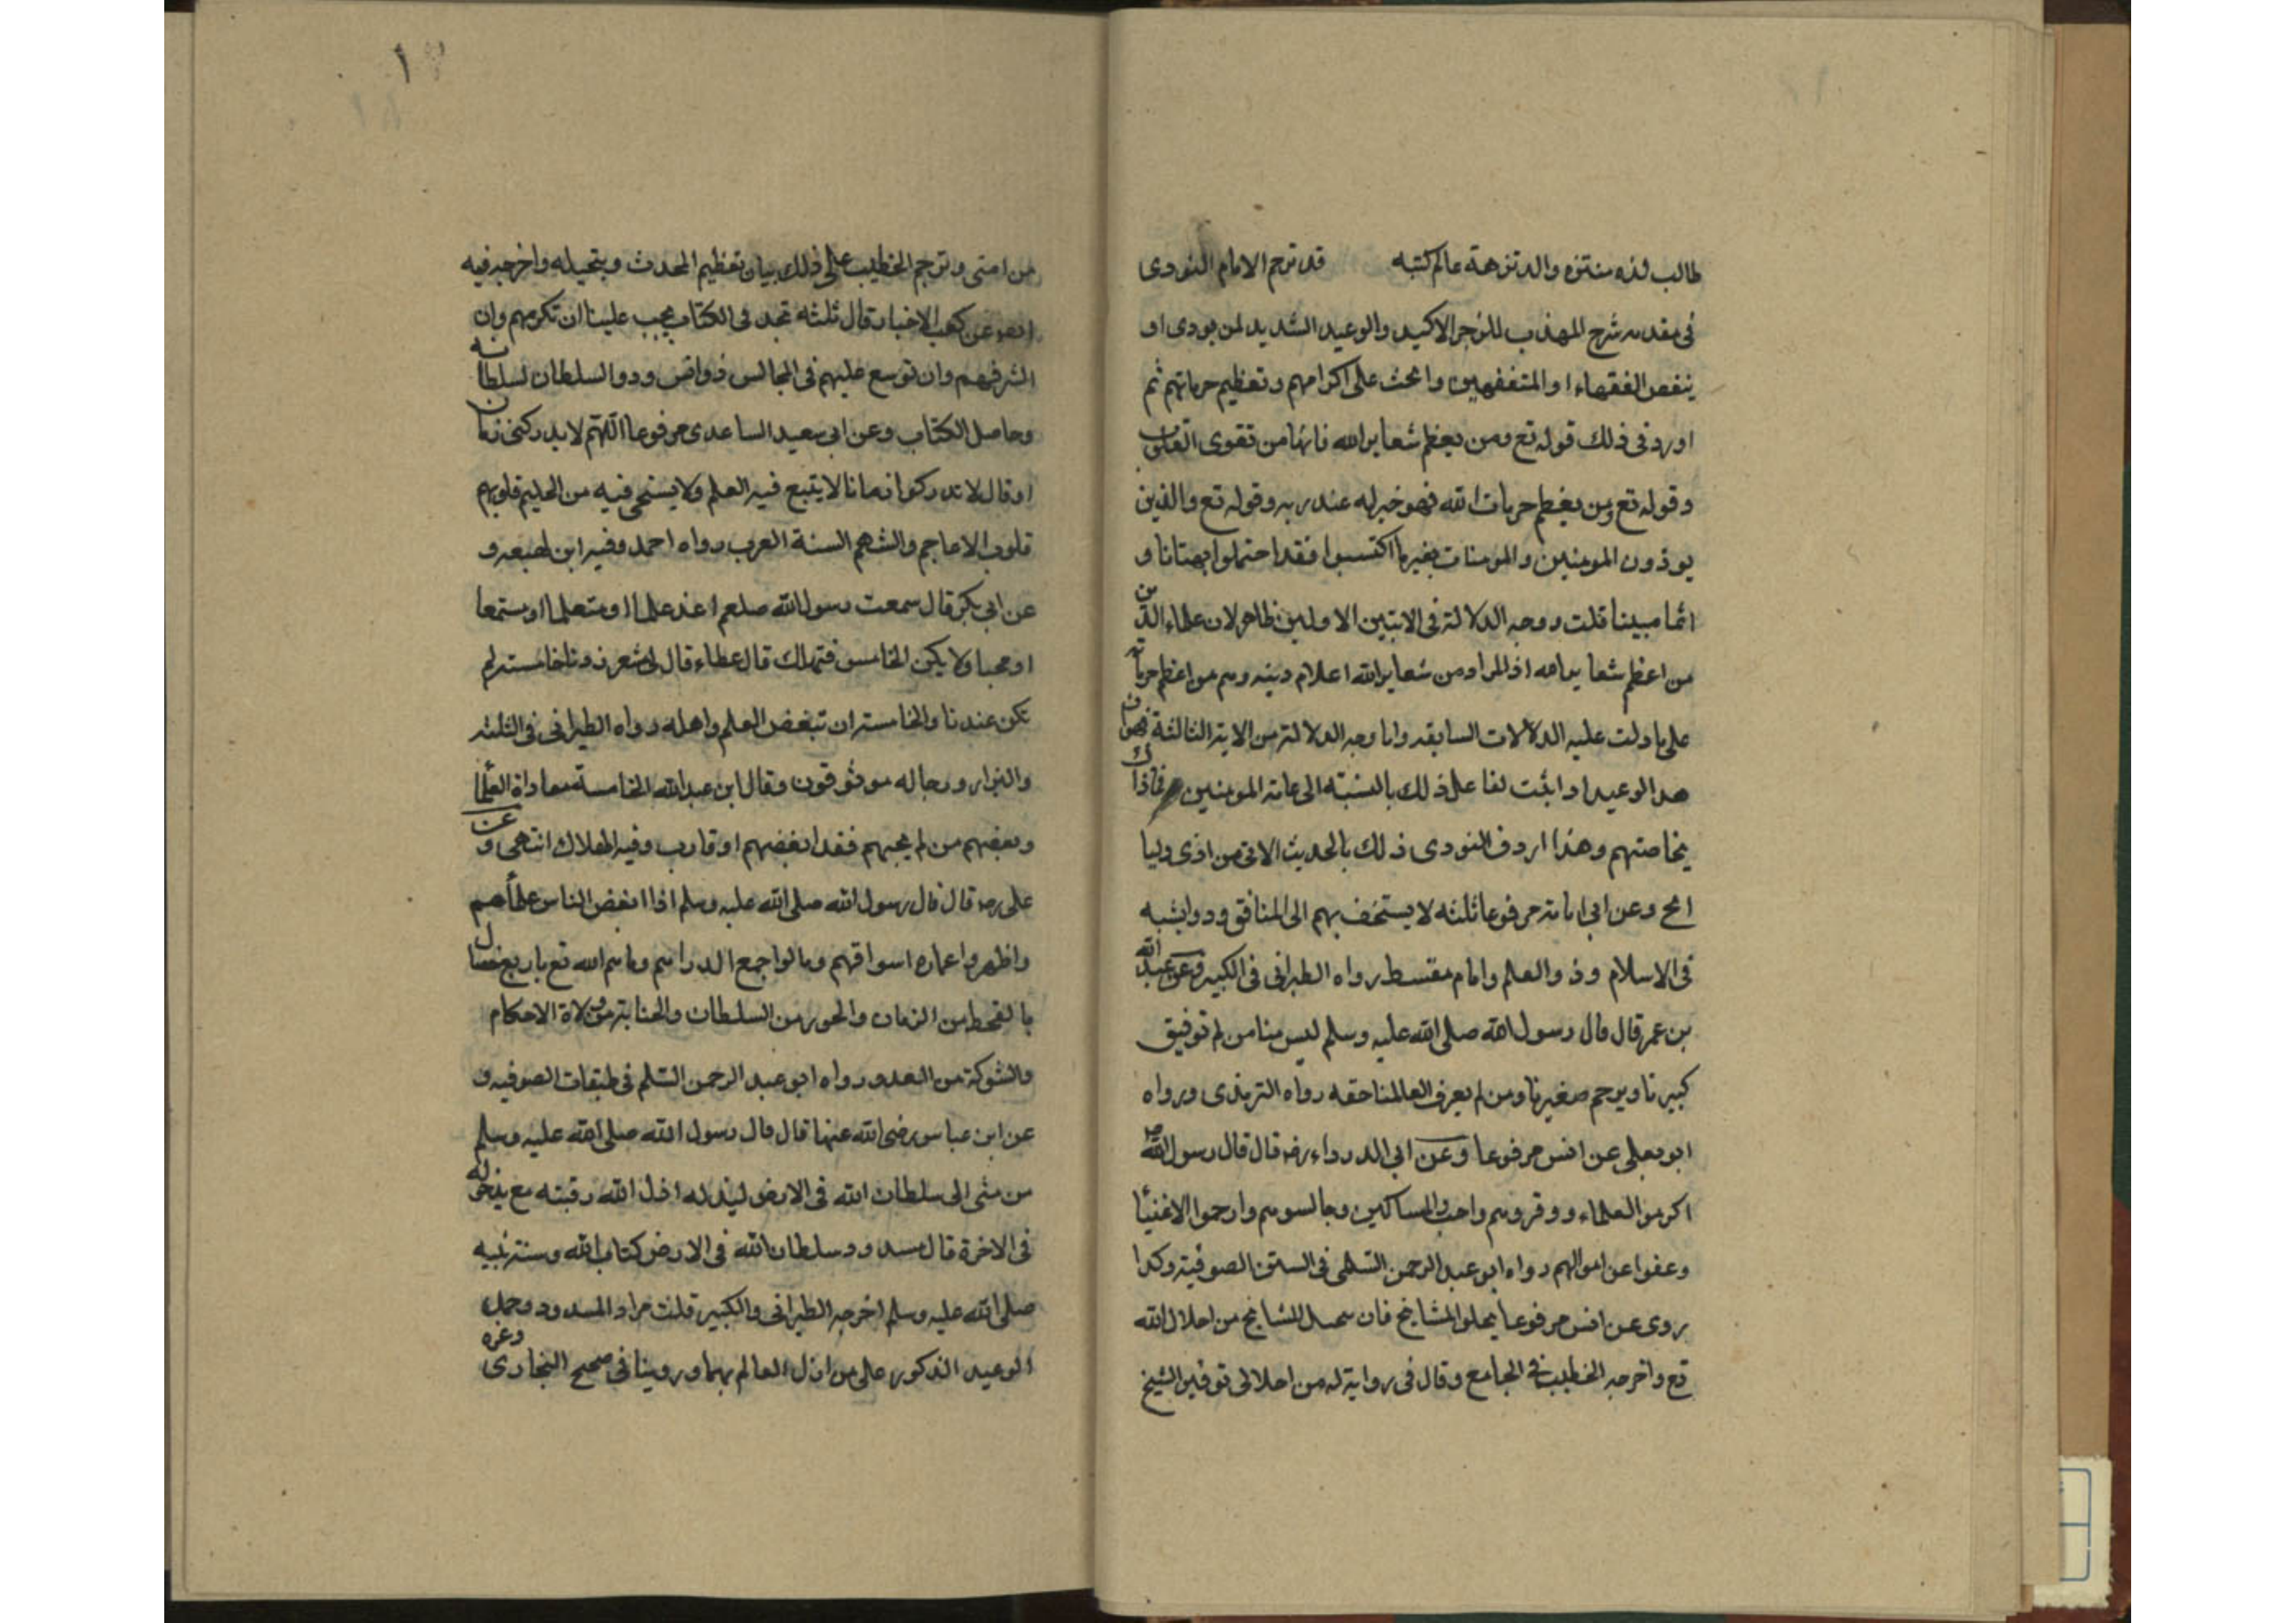 طالب لذه منتزه والد تنزهة عالم كتبه قد ترجم الامام النووى
فى مقدمه شرح المهذب للزجر الاكيد والوعيد الشديد لمن يودى او
ينقص الفقهاء او المتفقهين والحث على اكرامهم وتعظيم حرماتهم ثم
اورد فى ذلك قوله تع ومن يعظم شعاير الله فانها من تقوى القلوب
وقوله تع ومن يعظم حرمات الله فهو خير له عند ربه وقوله تع والذين
يوذون المومنين والمومنات بغير ما اكتسبوا فقد احتملوا بهتانا و
اثما مبينا قلت ووجه الدلالة فى الايتين الاولين ظاهر لان علماء الدين
من اعظم شعاير الله اذ المراد من شعاير الله اعلام دينه وهم من اعظم حرماته
على ما دلت عليه الدلالات السابقه واما وجه الدلالة من الاية الثالثة فهو ان
هذا الوعيد اذا ثبت لفاعل ذلك بالنسبة الى عامة المومنين فما ذاك
بخاصتهم وهذا اردف النووى ذلك بالحديث الاتى من اذى وليا
الخ وعن ابى امامة مرفوعا ثلثه لا يستخف بهم الا المنافق وذو الشيبه
فى الاسلام وذو العلم وامام مقسط رواه الطبرانى فى الكبير وعن عبد الله
بن عمر قال قال رسول الله صلى الله عليه وسلم ليس منا من لم توفيق
كبيرنا ويرحم صغيرنا ومن لم يعرف العالمنا حقه رواه الترمذى ورواه
ابو يعلى عن انس مرفوعا وعن ابى الدرداء رضه قال قال رسول الله ص
اكرموا العلماء ووقروهم واحبوا المساكين وجالسوهم وارحموا الاغنيا
وعفوا عن اموالهم رواه ابو عبد الرحمن السلمى فى السنن الصوفية وكذا
روى عن انس مرفوعا بجلوا المشايخ فان تبجيل المشايخ من اجلال الله
تع واخرجه الخطيب فى الجامع وقال فى رواية له من اجلالى توقير الشيخ
من امتى وترجم الخطيب على ذلك بيان تعظيم المحدث وبتجيله واخرجه فيه
ايضو عن كعب الاخبار قال ثلثه تجد فى الكتاب يجب علينا ان تكرمهم وان
الشرفهم وان توسع عليهم فى المجالس ذواض وذو السلطان لسلطانه
وحاصل الكتاب وعن ابى سعيد الساعدى مرفوعا اللهم لا يدركنى زمان
او قال لا تدركوا زمانا لا يتبع فيه العلم ولا يستحى فيه من الحليم قلوبهم
قلوب الاعاجم والشهم السنة العرب رواه احمد وفيه ابن لهيعه و
عن ابى بكر قال سمعت رسول الله صلعم اغد علما او متعلما او مستمعا
او محبا ولا يكن الخامس فتهلك قال عطاء قال لى مشعر زدنا خامسة لم
تكن عندنا والخامسة ان تبغض العلم واهله رواه الطبرانى فى الثلثه
والبزار ورجاله موثوقون وقال ابن عبد الله الخامسة معاداة العلما
وبعضهم من لم يحبهم فقد ابغضهم او قارب وفيه الهلاك انتهى وعن
على رضه قال قال رسول الله صلى الله عليه وسلم اذا ابغض الناس علماهم
واظهروا عماره اسواقهم وتالوا جمع الدراهم رماهم الله تع باربع خصال
بالقحط من الزمان والجور من السلطان والخيانة من ولاة الاحكام
والشوكة من العدو رواه ابو عبد الرحمن السلم فى طبقات الصوفيه و
عن ابن عباس رضى الله عنهما قال قال رسول الله صلى الله عليه وسلم
من مشى الى سلطان الله فى الارض ليذله اذل الله رقبته مع يذخر له
فى الاخرة قال مسدود وسلطان الله فى الارض كتاب الله وسنة نبيه
صلى الله عليه وسلم اخرجه الطبرانى والكبير قلنت مراد المسدود وحمل
الوعيد المذكور على من اذل العالم بهما وروينا فى صحيح البخارى وغره